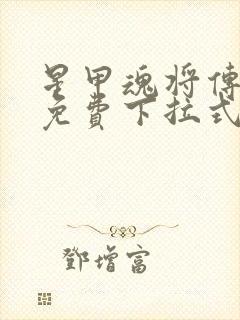 星甲魂将傳
免費下拉式
鄧增富